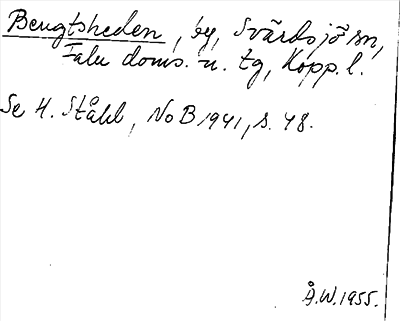 Bengtsheden, by, Svärdsjö sn,
Falu doms. o. tg, Kopp. l.
Se H. Ståhl, NoB 1941, s. 48.
Å.W. 1955.